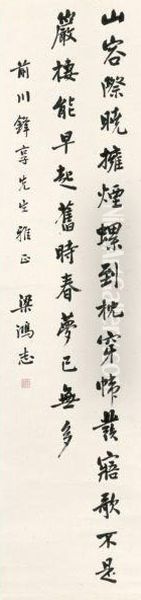 山容際曉擁煙螺到枕穿帷發寤歌不是
巖棲能早起舊時春夢已無多
前川鋒享先生雅正
梁鴻志